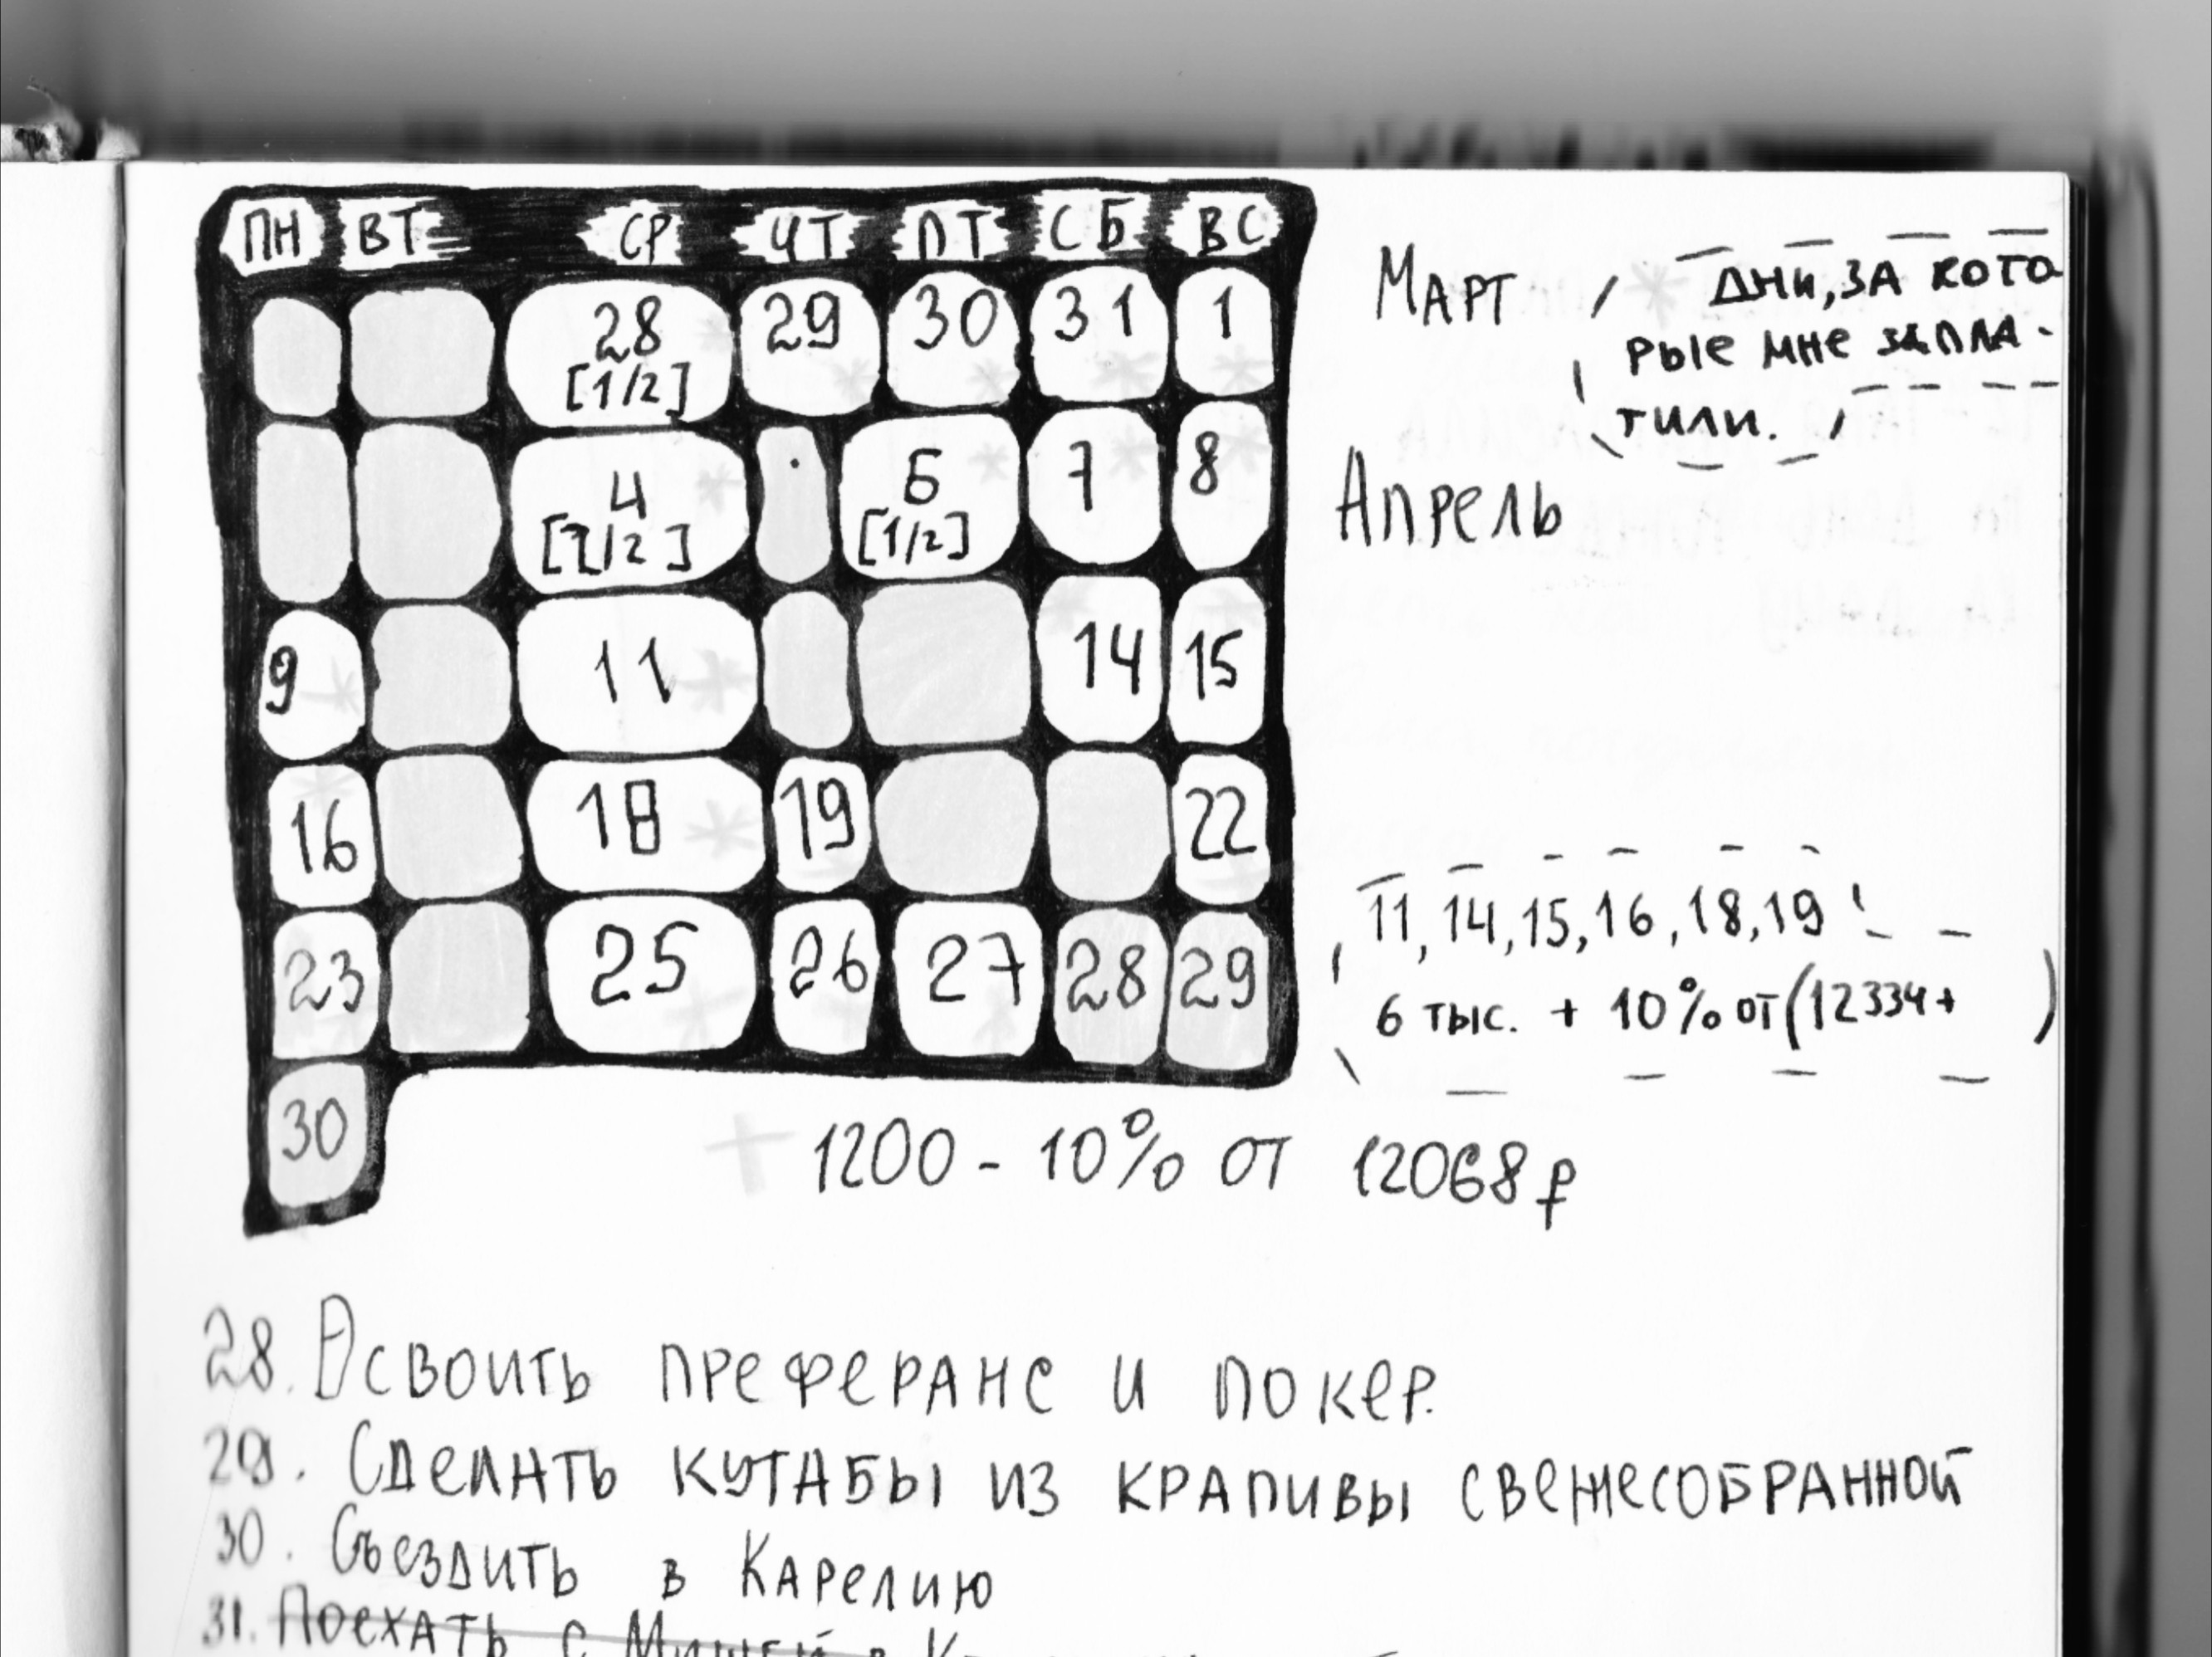 ПН ВТ СР ЧТ ПТ СБ ВС
28 29 30 31 1
[1/2]
Март
дни, за кото
рые мне запла-
тили.
4 6 7 8
[1/2] [1/2]
Апрель
9 11 14 15
16 18 19 22
11, 14, 15, 16, 18, 19
23 25 26 27 28 29
6 тыс. + 10% от (12334+ )
30
+ 1200 - 10% от 12068₽
28. Освоить преферанс и покер.
29. Сделать кутабы из крапивы свежесобранной
30. Съездить в Карелию
31. Поехать с Мишей в